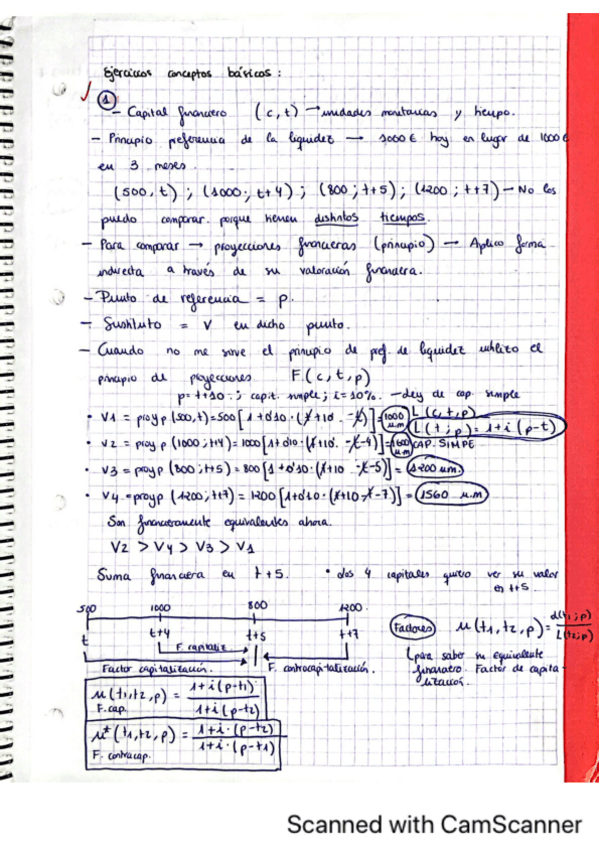 Ejercicios conceptos básicos :
①
- Capital financiero (c, t) → unidades monetarias y tiempo.
- Principio preferencia de la liquidez → 1000 € hoy en lugar de 1000 €
en 3 meses.
(500, t) ; (1000; t+4) ; (800 ; t+5) ; (1200 ; t+7) - No los
puedo comparar porque tienen distintos tiempos.
- Para comparar → proyecciones financieras (principio) - Aplico forma
indirecta a través de su valoración financiera.
- Punto de referencia = p.
- Sustituto = V en dicho punto.
- Cuando no me sirve el principio de pref. de liquidez utilizo el
principio de proyecciones F(c, t, p)
p= t+10 ; capit. simple ; i = 10%. - Ley de cap simple
• V1 = proy p (500, t) = 500 [1 + 0'10 · (t+10 - t)] = 1000 u.m L(c, t, p)
L(t ; p) = 1 + i (p-t)
• V2 = proy p (1000 ; t+4) = 1000 [1 + 0'10 · (t+10 - t-4)] = 1600 u.m CAP. SIMPE
• V3 = proy p (800 ; t+5) = 800 [1 + 0'10 · (t+10 - t-5)] = 1200 u.m.
• V4 = proy p (1200 ; t+7) = 1200 [1 + 0'10 · (t+10 - t-7)] = 1560 u.m
Son financieramente equivalentes ahora.
V2 > V4 > V3 > V1
Suma financiera en t+5. • dos 4 capitales quiero ver su valor
en t+5
500 1000 800 1200.
t t+4 t+5 t+7
Factores u(t1, t2, p) = L(t1 ; p) / L(t2 ; p)
F. capitaliz
Factor capitalización. F. contracapitalización.
para saber su equivalente
financiero. Factor de capita-
lización.
u(t1, t2, p) = 1 + i (p-t1) / 1 + i (p-t2)
F. cap.
u*(t1, t2, p) = 1 + i · (p-t2) / 1 + i · (p-t1)
F. contracap.
Scanned with CamScanner